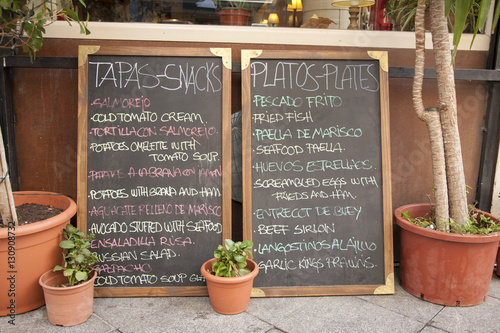 TAPAS-SNACKS
SALMOREJO
COLD TOMATO CREAM.
TORTILLA CON SALMOREJO
POTATOS OMELETTE WITH
TOMATO SOUP.
A LA BRANA CON JAMON
POTATOS WITH BRANA AND HAM
AGUACATE RELLENO DE MARISCO
AVOCADO STUFFED WITH SEAFOOD
ENSALADILLA RUSA.
RUSSIAN SALAD.
GASPACHO
COLD TOMATO SOUP
PLATOS-PLATES
PESCADO FRITO
FRIED FISH
PAELLA DE MARISCO
SEAFOOD PAELLA.
HUEVOS ESTRELLAOS.
SCREAMBLED EGGS WITH
FRIEDS AND HAM.
ENTRECOT DE BUEY
BEEF SIRLION
LANGOSTINOS AL AJILLO
GARLIC KINGS PRAWNS.
130908732